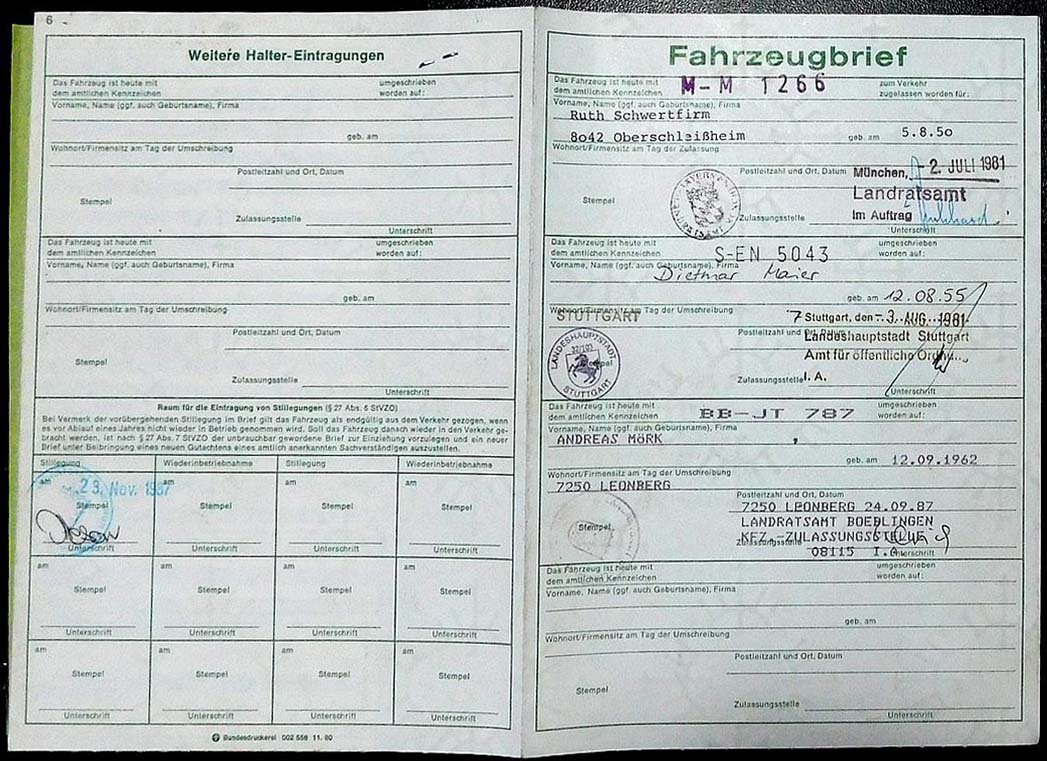 6
Weitere Halter-Eintragungen
Das Fahrzeug ist heute mit umgeschrieben
dem amtlichen Kennzeichen worden auf:
Vorname, Name (ggf. auch Geburtsname), Firma
geb. am
Wohnort/Firmensitz am Tag der Umschreibung
Postleitzahl und Ort, Datum
Stempel
Zulassungsstelle
Unterschrift
Das Fahrzeug ist heute mit umgeschrieben
dem amtlichen Kennzeichen worden auf:
Vorname, Name (ggf. auch Geburtsname), Firma
geb. am
Wohnort/Firmensitz am Tag der Umschreibung
Postleitzahl und Ort, Datum
Stempel
Zulassungsstelle
Unterschrift
Raum für die Eintragung von Stillegungen (§ 27 Abs. 6 StVZO)
Bei Vermerk der vorübergehenden Stillegung im Brief gilt das Fahrzeug als endgültig aus dem Verkehr gezogen, wenn
es vor Ablauf eines Jahres nicht wieder in Betrieb genommen wird. Soll das Fahrzeug danach wieder in den Verkehr ge-
bracht werden, ist nach § 27 Abs. 7 StVZO der unbrauchbar gewordene Brief zur Einziehung vorzulegen und ein neuer
Brief unter Beibringung eines neuen Gutachtens eines amtlich anerkannten Sachverständigen auszustellen.
Stillegung Wiederinbetriebnahme Stillegung Wiederinbetriebnahme
am am am am
23. Nov. 1987
Stempel Stempel Stempel Stempel
Unterschrift Unterschrift Unterschrift Unterschrift
am am am am
Stempel Stempel Stempel Stempel
Unterschrift Unterschrift Unterschrift Unterschrift
am am am am
Stempel Stempel Stempel Stempel
Unterschrift Unterschrift Unterschrift Unterschrift
Bundesdruckerei 002 556 11. 80
Fahrzeugbrief
Das Fahrzeug ist heute mit M-M 1266 zum Verkehr
dem amtlichen Kennzeichen zugelassen worden für:
Vorname, Name (ggf. auch Geburtsname), Firma
Ruth Schwertfirm
8o42 Oberschleißheim geb. am 5.8.5o
Wohnort/Firmensitz am Tag der Zulassung
Postleitzahl und Ort, Datum München, - 2. JULI 1981
Landratsamt
Stempel
Zulassungsstelle Im Auftrag
Unterschrift
Das Fahrzeug ist heute mit umgeschrieben
dem amtlichen Kennzeichen S-EN 5043 worden auf:
Vorname, Name (ggf. auch Geburtsname), Firma
Dietmar Maier
geb. am 12.08.55
Wohnort/Firmensitz am Tag der Umschreibung
STUTTGART
7 Stuttgart, den - 3. AUG. 1981
Postleitzahl und Ort, Datum
Landeshauptstadt Stuttgart
LANDESHAUPTSTADT
STUTTGART
Stempel
Amt für öffentliche
Zulassungsstelle I. A.
Unterschrift
Das Fahrzeug ist heute mit umgeschrieben
dem amtlichen Kennzeichen BB-JT 787 worden auf:
Vorname, Name (ggf. auch Geburtsname), Firma
ANDREAS MöRK ,
geb. am 12.09.1962
Wohnort/Firmensitz am Tag der Umschreibung
7250 LEONBERG
Postleitzahl und Ort, Datum
7250 LEONBERG 24.09.87
LANDRATSAMT BOEBLINGEN
Stempel
KFZ.-ZULASSUNGSSTELLE
Zulassungsstelle
08115 I.A.
Unterschrift
Das Fahrzeug ist heute mit umgeschrieben
dem amtlichen Kennzeichen worden auf:
Vorname, Name (ggf. auch Geburtsname), Firma
geb. am
Wohnort/Firmensitz am Tag der Umschreibung
Postleitzahl und Ort, Datum
Stempel
Zulassungsstelle
Unterschrift